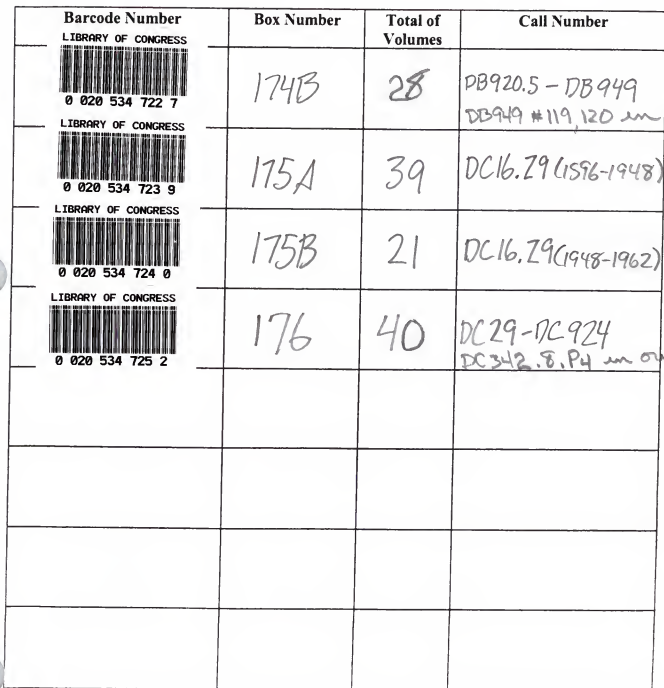 Barcode Number Box Number Total of Volumes Call Number
LIBRARY OF CONGRESS
0 020 534 722 7
174B 28 DB920.5 - DB949
DB949 #119, 120 in
LIBRARY OF CONGRESS
0 020 534 723 9
175A 39 DC16.Z9 (1596-1948)
LIBRARY OF CONGRESS
0 020 534 724 0
175B 21 DC16.Z9 (1948-1962)
LIBRARY OF CONGRESS
0 020 534 725 2
176 40 DC29 - DC924
DC342.8.P4 in